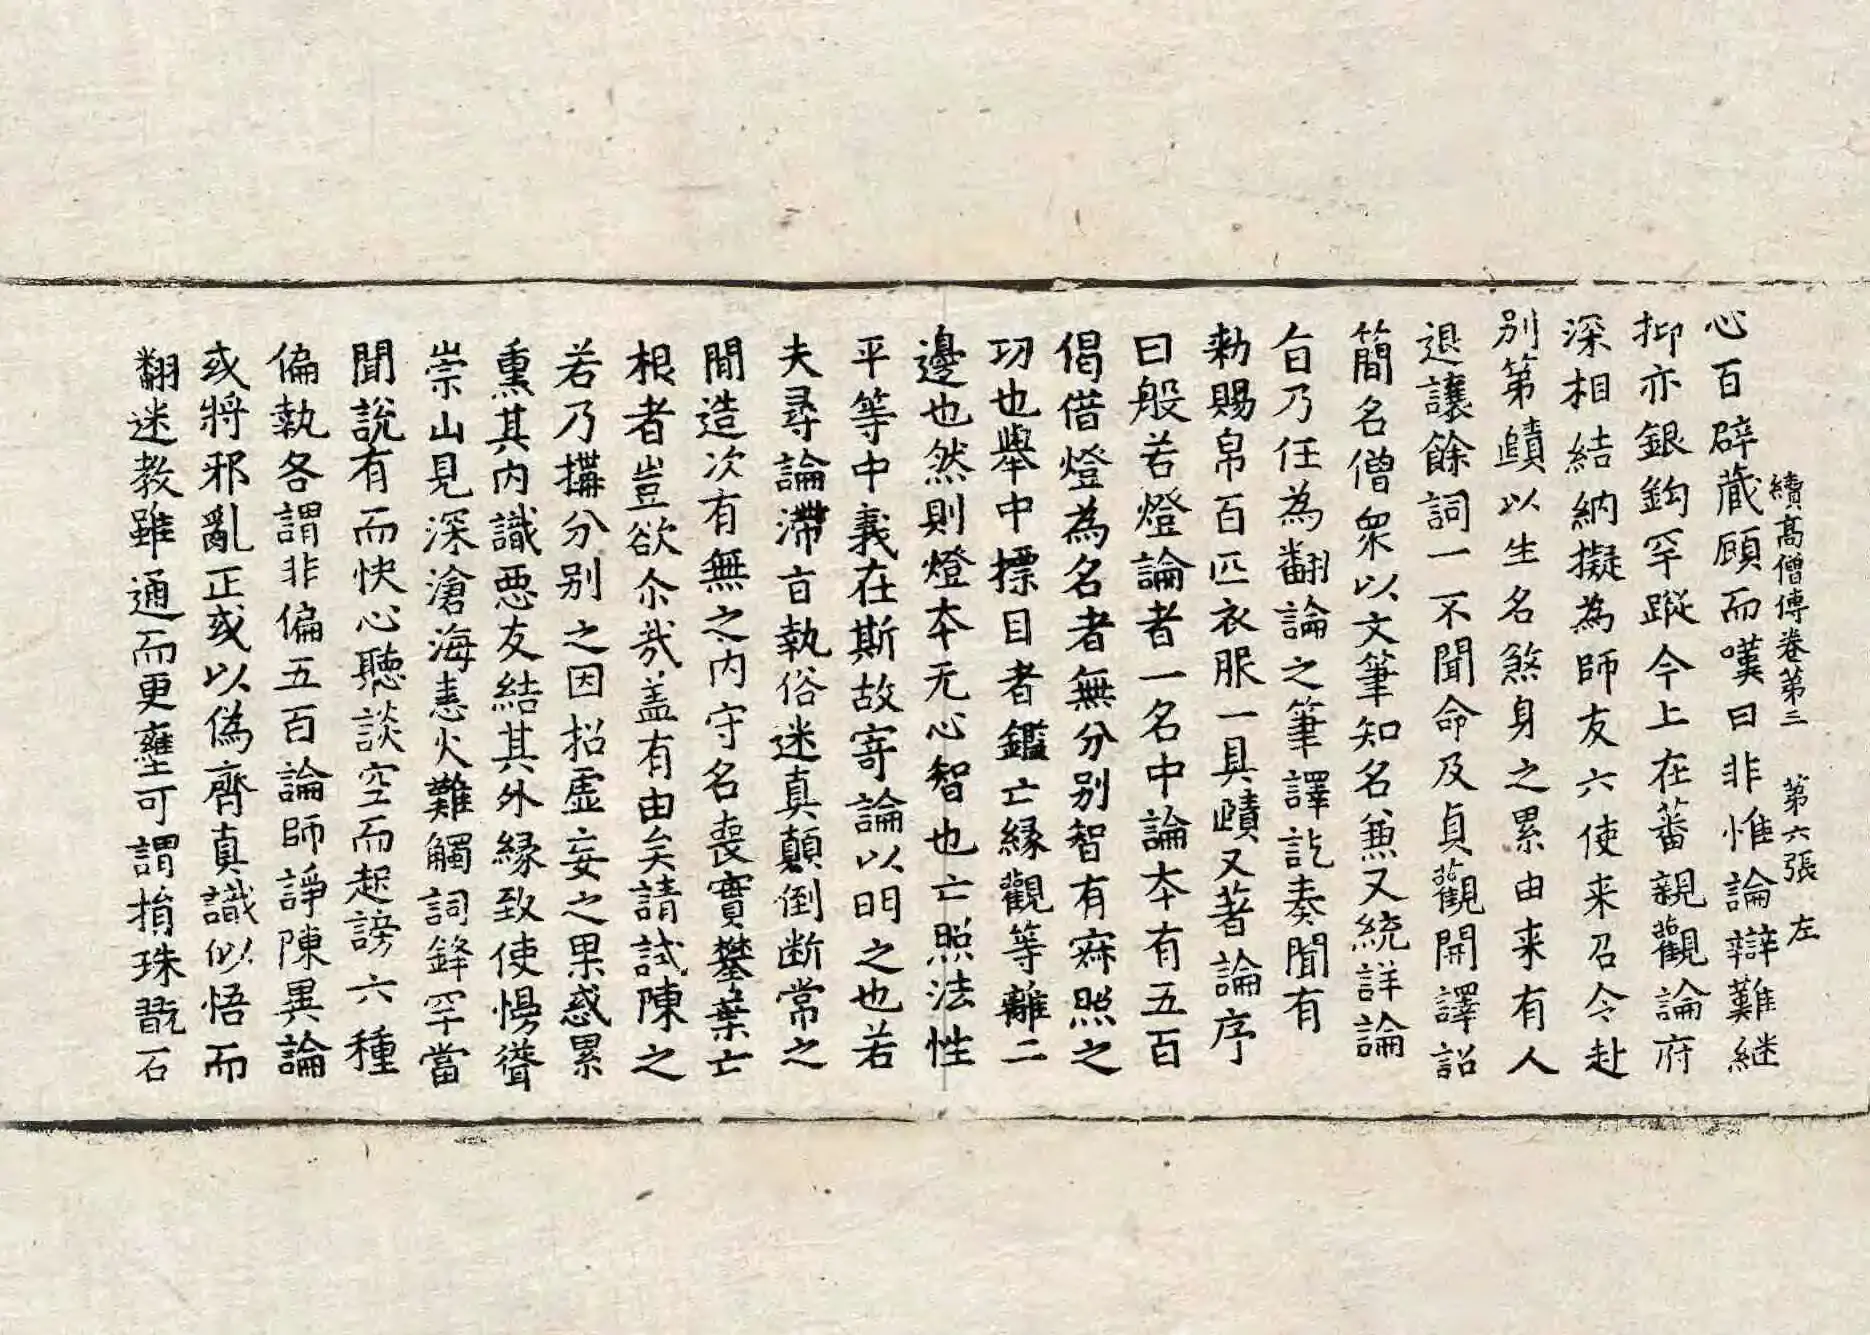 續高僧傳卷第三　第六張　左
心百辟藏顧而嘆曰非惟論辯難継
抑亦銀鈎罕蹤今上在蕃親觀論府
深相結納擬為師友六使来召令赴
別第賾以生名煞身之累由来有人
退讓餘詞一不聞命及貞觀開譯詔
簡名僧衆以文筆知名兼又統詳論
旨乃任為翻論之筆譯訖奏聞有
勑賜帛百匹衣服一具賾又著論序
曰般若燈論者一名中論本有五百
偈借燈為名者無分别智有寂照之
功也舉中摽目者鑑亡縁觀等離二
邊也然則燈本无心智也亡照法性
平等中義在斯故寄論以明之也若
夫尋論滯旨執俗迷真顛倒断常之
間造次有無之内守名喪實攀葉亡
根者豈欲尒哉盖有由矣請試陳之
若乃搆分别之因招虛妄之果惑累
熏其内識惡友結其外縁致使慢聳
崇山見深滄海恚火難觸詞鋒罕當
聞說有而快心聽談空而起謗六種
偏執各謂非偏五百論師諍陳異論
或將邪亂正或以偽齊真識似悟而
翻迷教雖通而更壅可謂捐珠翫石